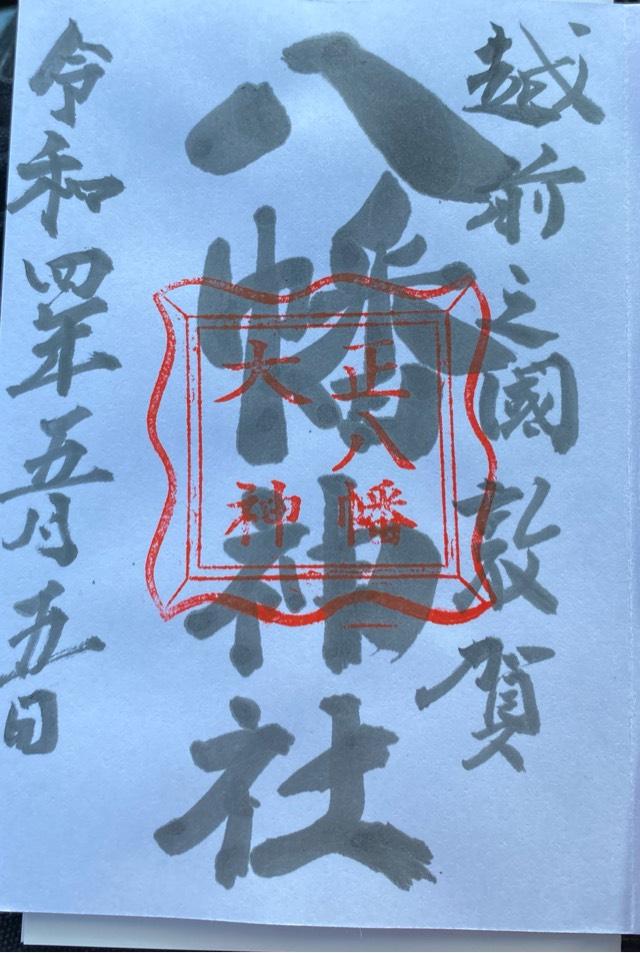 越前之國敦賀
八幡神社
正八幡
大神
令和四年五月五日